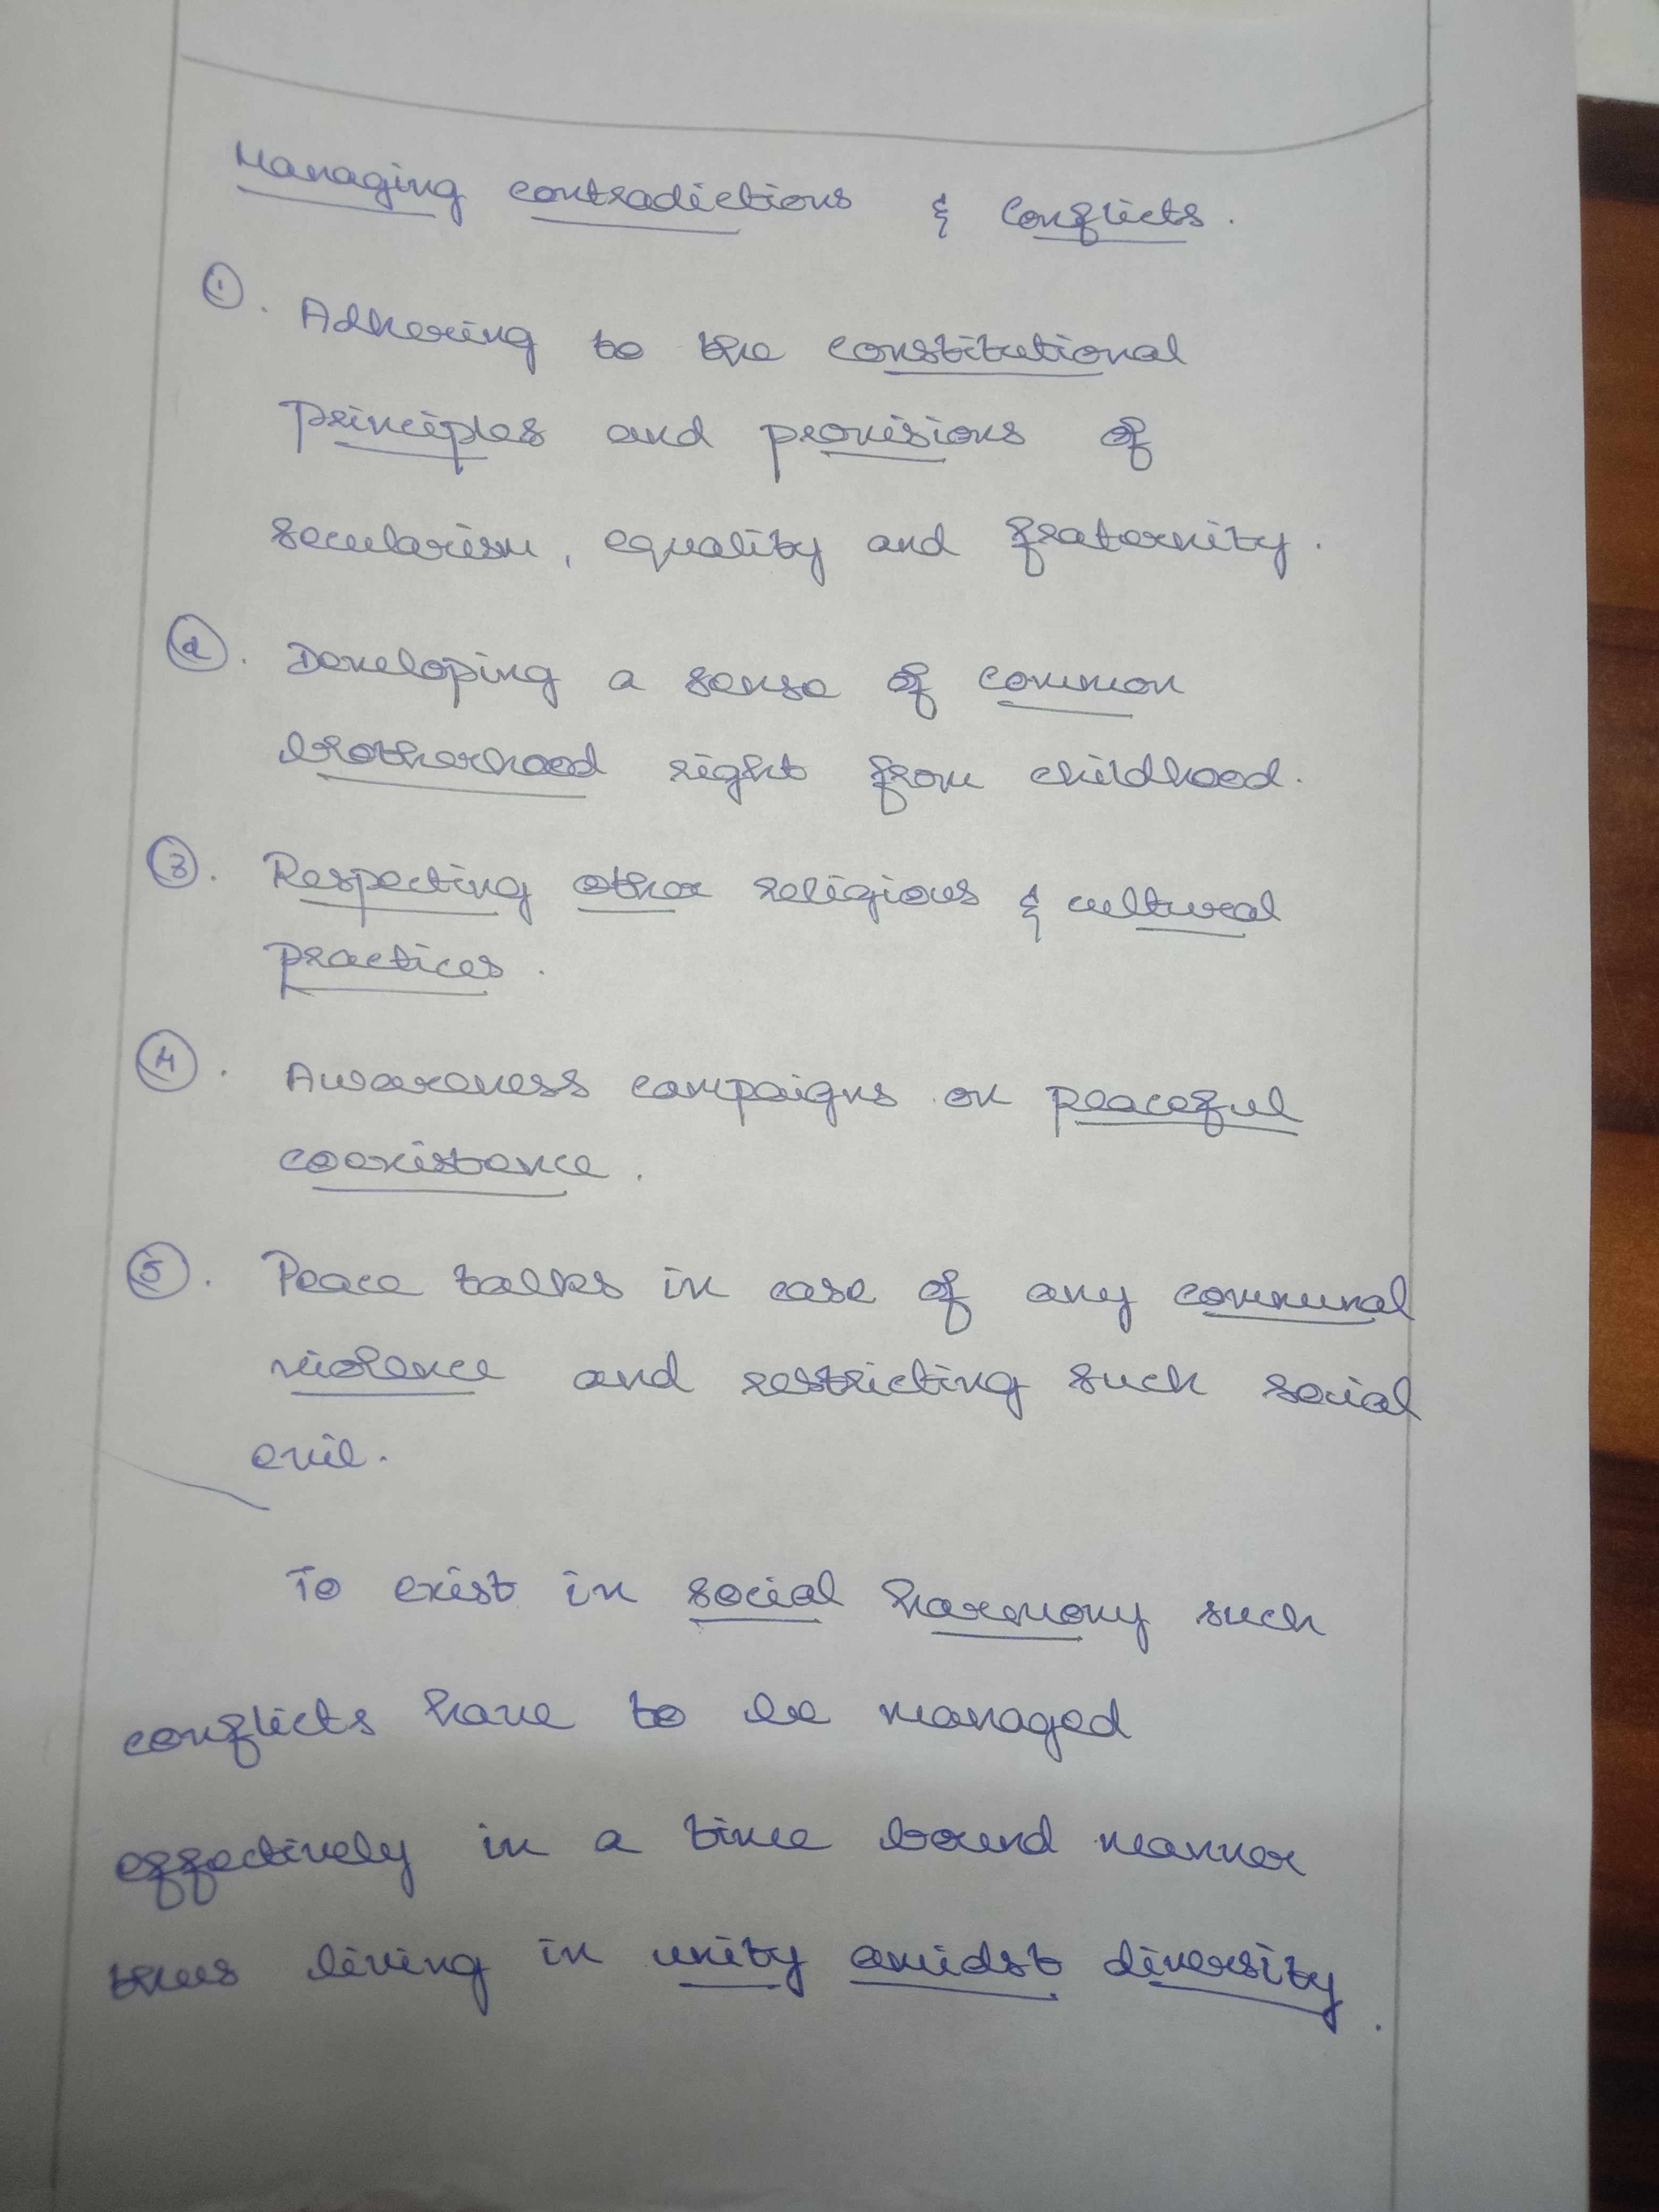 Managing contradictions & Conflicts.
①. Adhering to the constitutional
principles and provisions of
secularism, equality and fraternity.
②. Developing a sense of common
brotherhood right from childhood.
③. Respecting other religious & cultural
practices.
④. Awareness campaigns on peaceful
coexistence.
⑤. Peace talks in case of any communal
violence and restricting such social
evil.
To exist in social harmony such
conflicts have to be managed
effectively in a time bound manner
thus living in unity amidst diversity.